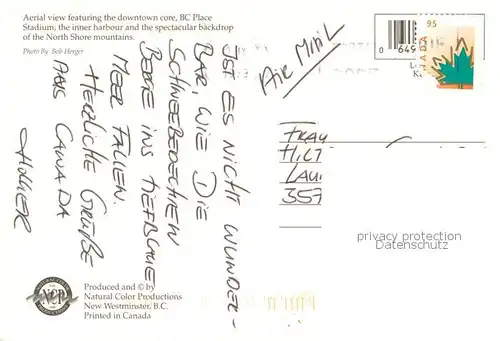 Aerial view featuring the downtown core, BC Place
Stadium, the inner harbour and the spectacular backdrop
of the North Shore mountains.
Photo By: Bob Herger
IST ES NICHT WUNDER-
BAR, WIE DIE
SCHNEEBEDECKTEN
BERGE INS TIEFBLAUE
MEER FALLEN.
HERZLICHE GRÜßE
AUS CANADA
HOLGER
AIR MAIL
95
CANADA
0 649
FRAU
HILT
LAU
357
privacy protection
Datenschutz
NCP
Produced and © by
Natural Color Productions
New Westminster, B.C.
Printed in Canada